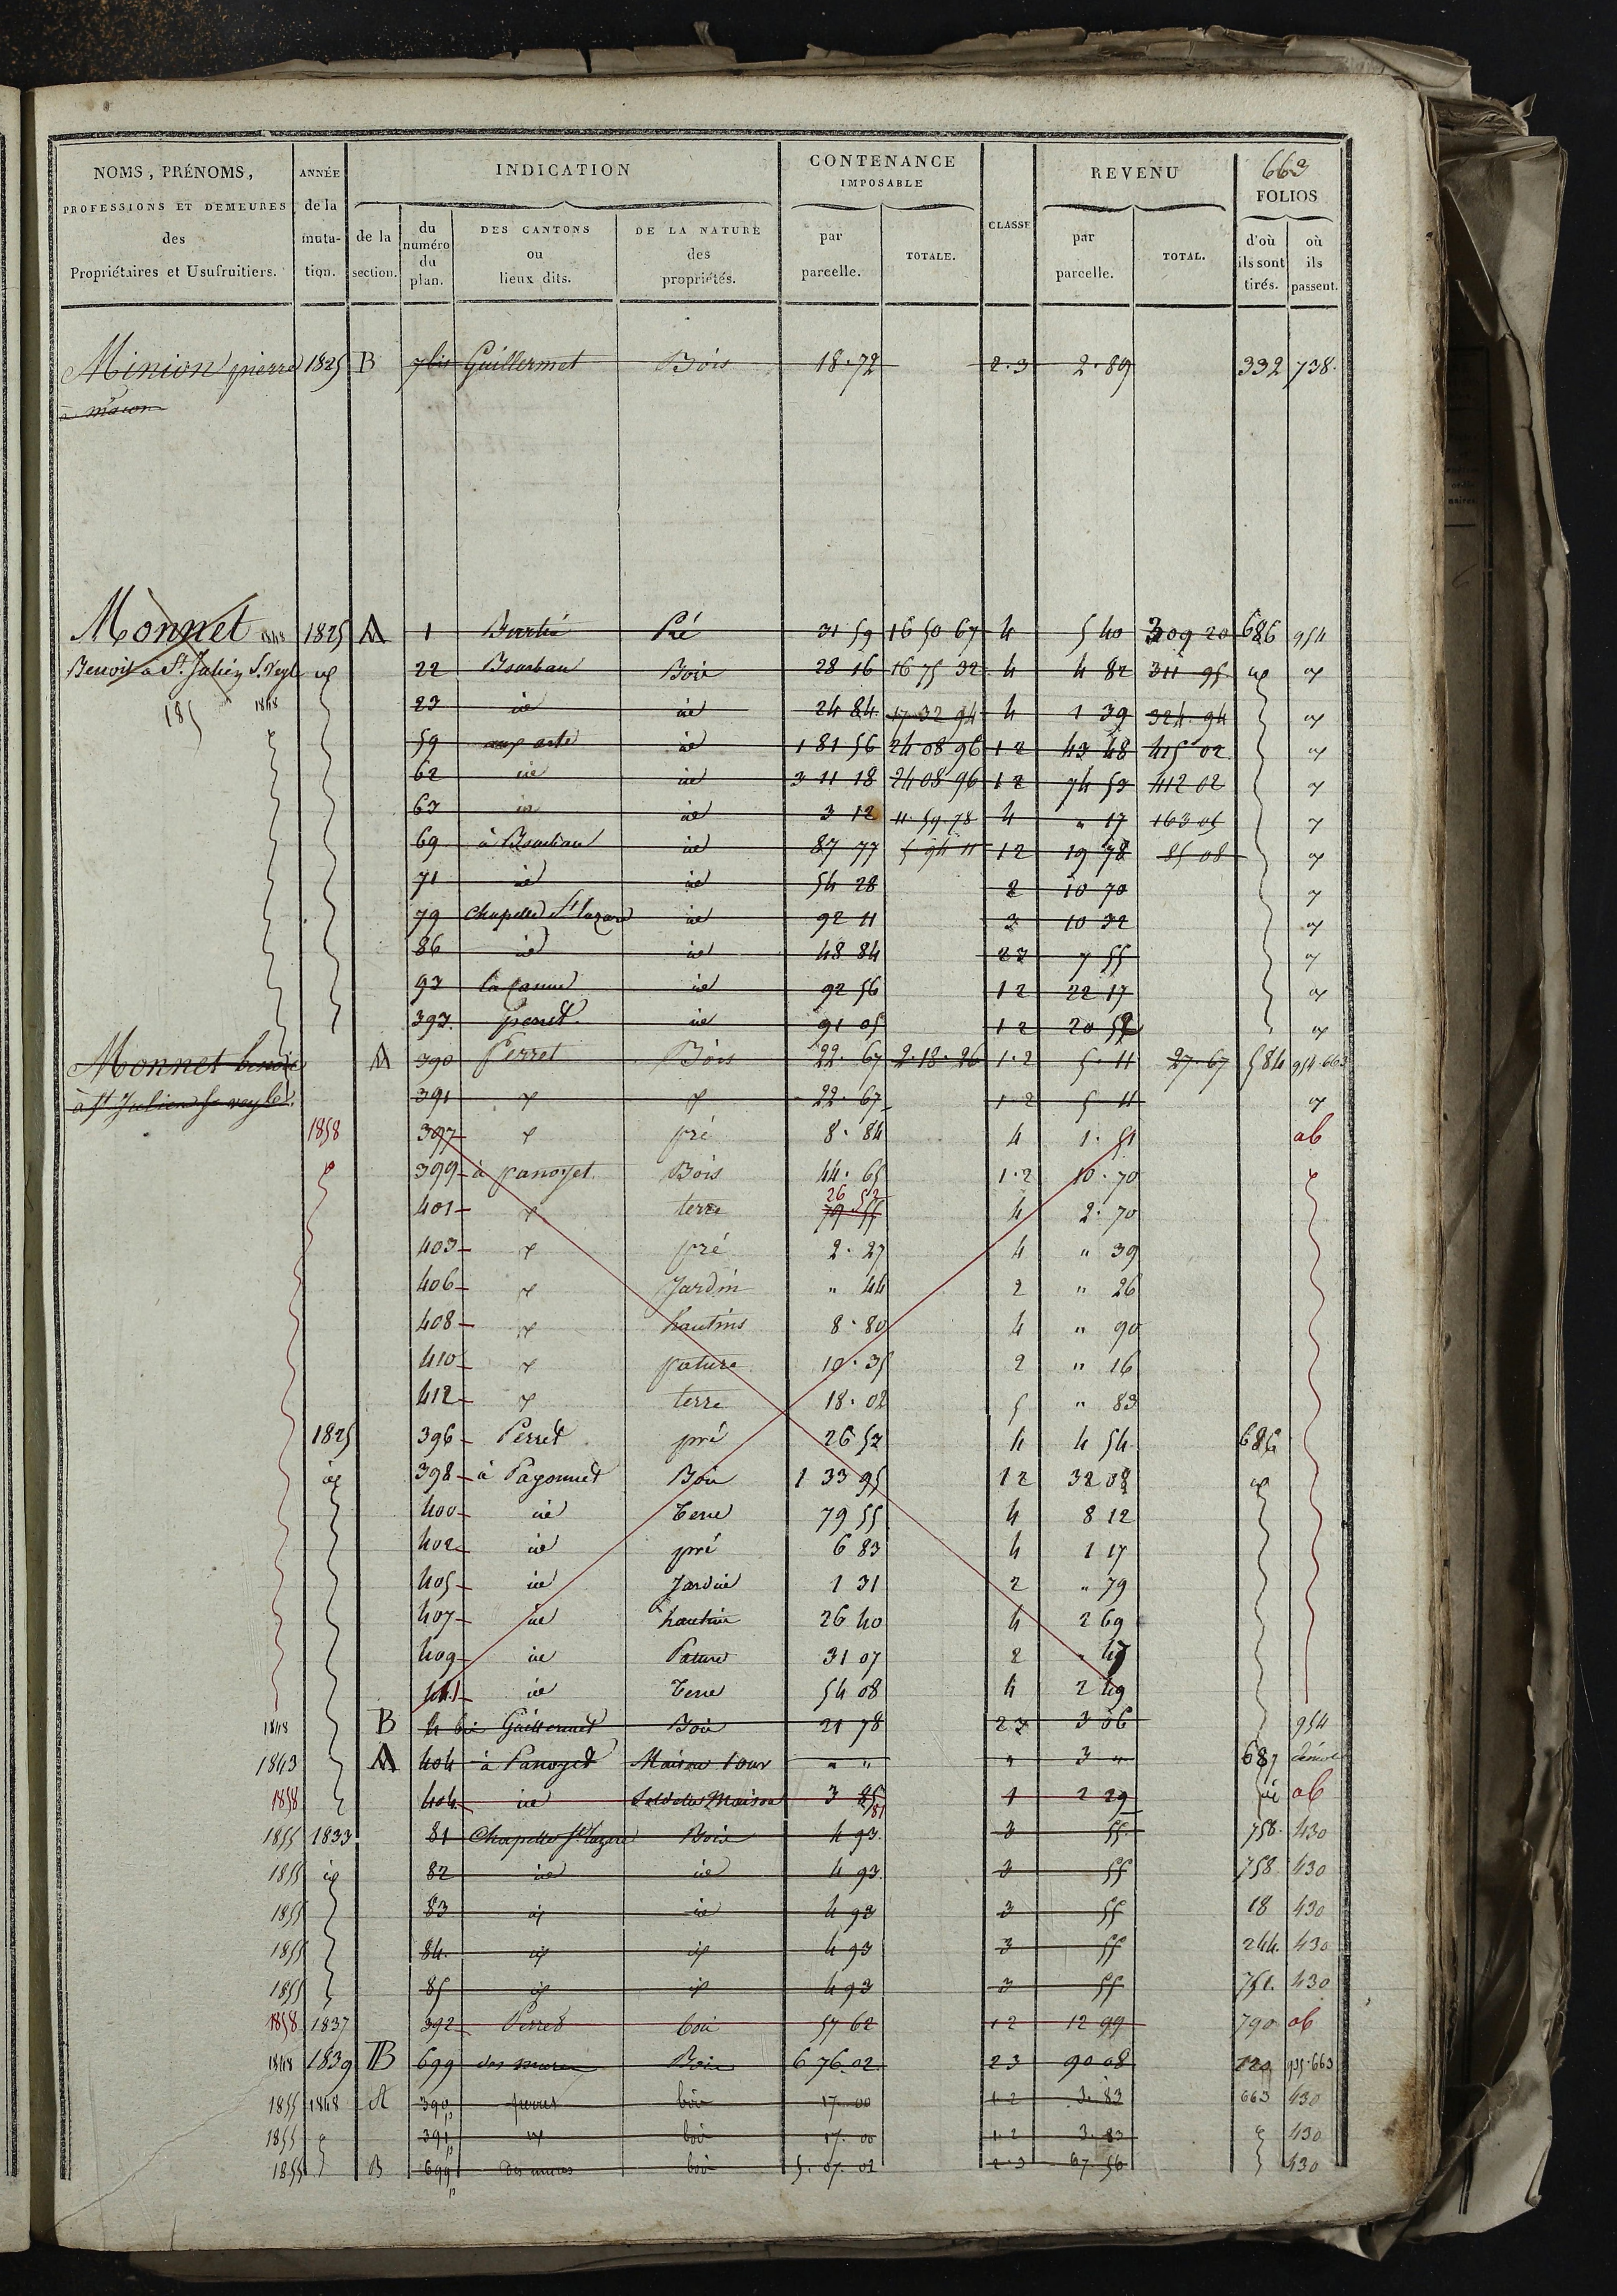 663
NOMS, PRÉNOMS, PROFESSIONS ET DEMEURES des Propriétaires et Usufruitiers.
ANNÉE de la muta-tion.
INDICATION
de la section.
du numéro du plan.
DES CANTONS ou lieux dits.
DE LA NATURE des propriétés.
CONTENANCE IMPOSABLE
par parcelle.
TOTALE.
CLASSE
REVENU
par parcelle.
TOTAL.
FOLIOS
d'où ils sont tirés.
où ils passent.
Minion pierre 1825 B 7 bis Guillermet Bois 18.72 2.3 2.89 332 738.
à mâcon
Monnet 1848 1825 A 1 Pré 31 59 16 50 67 4 5 40 309 20 686 954
Benoit à St. Julien S. Veyl 22 Bois 28 16 16 75 32 4 4 82 311 95
185 1848 23 id id 24 84 17 32 94 4 1 39 324 94
59 id 1 81 56 24 08 96 1 2 43 48 415 02
62 id id 3 11 18 24 08 96 1 2 74 53 412 02
63 id id 3 12 11.59.78 4 " 17 163 05
69 id 87 77 5 94 11 1 2 19 78 85 08
71 id id 54 28 2 10 70
79 Chapelle St lazare id 92 11 3 10 32
86 id id 48 84 2 3 7 55
93 id 92 56 1 2 22 17
393. perret id 91 05 1 2 20 52
Monnet benoit A 390 Perret Bois 22.67 2.18.26 1.2 5.11 27.67 584 954.663
à St Julien S. veyle. 391 22.67 1.2 5 11
1858 397 pré 8.84 4 1.51 ab
399 à panoyet Bois 44.65 1.2 10.70
26 52
401 terre 79 55 4 2.70
403 pré 2.27 4 " 39
406 Jardin " 44 2 " 26
408 hautins 8.80 4 " 90
410 pature 10.35 2 " 16
412 terre 18.02 5 " 83
1825 396 Perret pré 26 52 4 4 54 686
398 à Bois 1 33 95 1 2 32 08
400 id Terre 79 55 4 8 12
402 id pré 6 83 4 1 17
405 id Jardin 1 31 2 " 79
407 id hautin 26 40 4 2 69
409 id Pature 31 07 2 " 47
411 id Terre 54 08 4 2 49
1848 B 4 bis Guillermet Bois 21 78 2 3 3 06 954
1843 A 404 à Panoyet Maison 1 our " " " 3 " 687
1858 404 id Sol de la Maison 3 85 1 2 29 id ab
81
1855 1833 81 Chapelle St lazare Bois 4 93. 3 55. 758. 430
1855 id 82 id id 4 93. 3 55 758 430
1855 83 id id 4 93 3 55 18 430
1855 84. id id 4 93 3 55 244. 430
1855 85 id id 4 93 3 55 751. 430
1858 1837 392 Perret bois 57 62 1 2 12 99 790 ab
1848 1839 B 699 des mures Bois 6 76.02 2 3 90 08 120 935.663
1855 1848 A 390p perret bois 17.00 1 2 3.83 663 430
1855 391p bois 17.00 1.2 3.83 430
1855 B 699p des mures bois 5.07.02 2.3 67 56 430